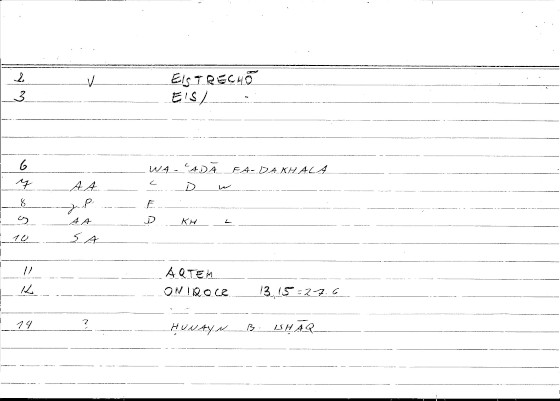 2 V EISTRECHŌ
3 EIS/ -
6 WA-ʿADĀ FA-DAKHALA
7 AA ʿ D W
8 P F
9 AA D KH L
10 SA
11 ARTEM
12 ONIROCR 13,15 = 27.6
14 ? ḤUNAYN B. ISḤĀQ